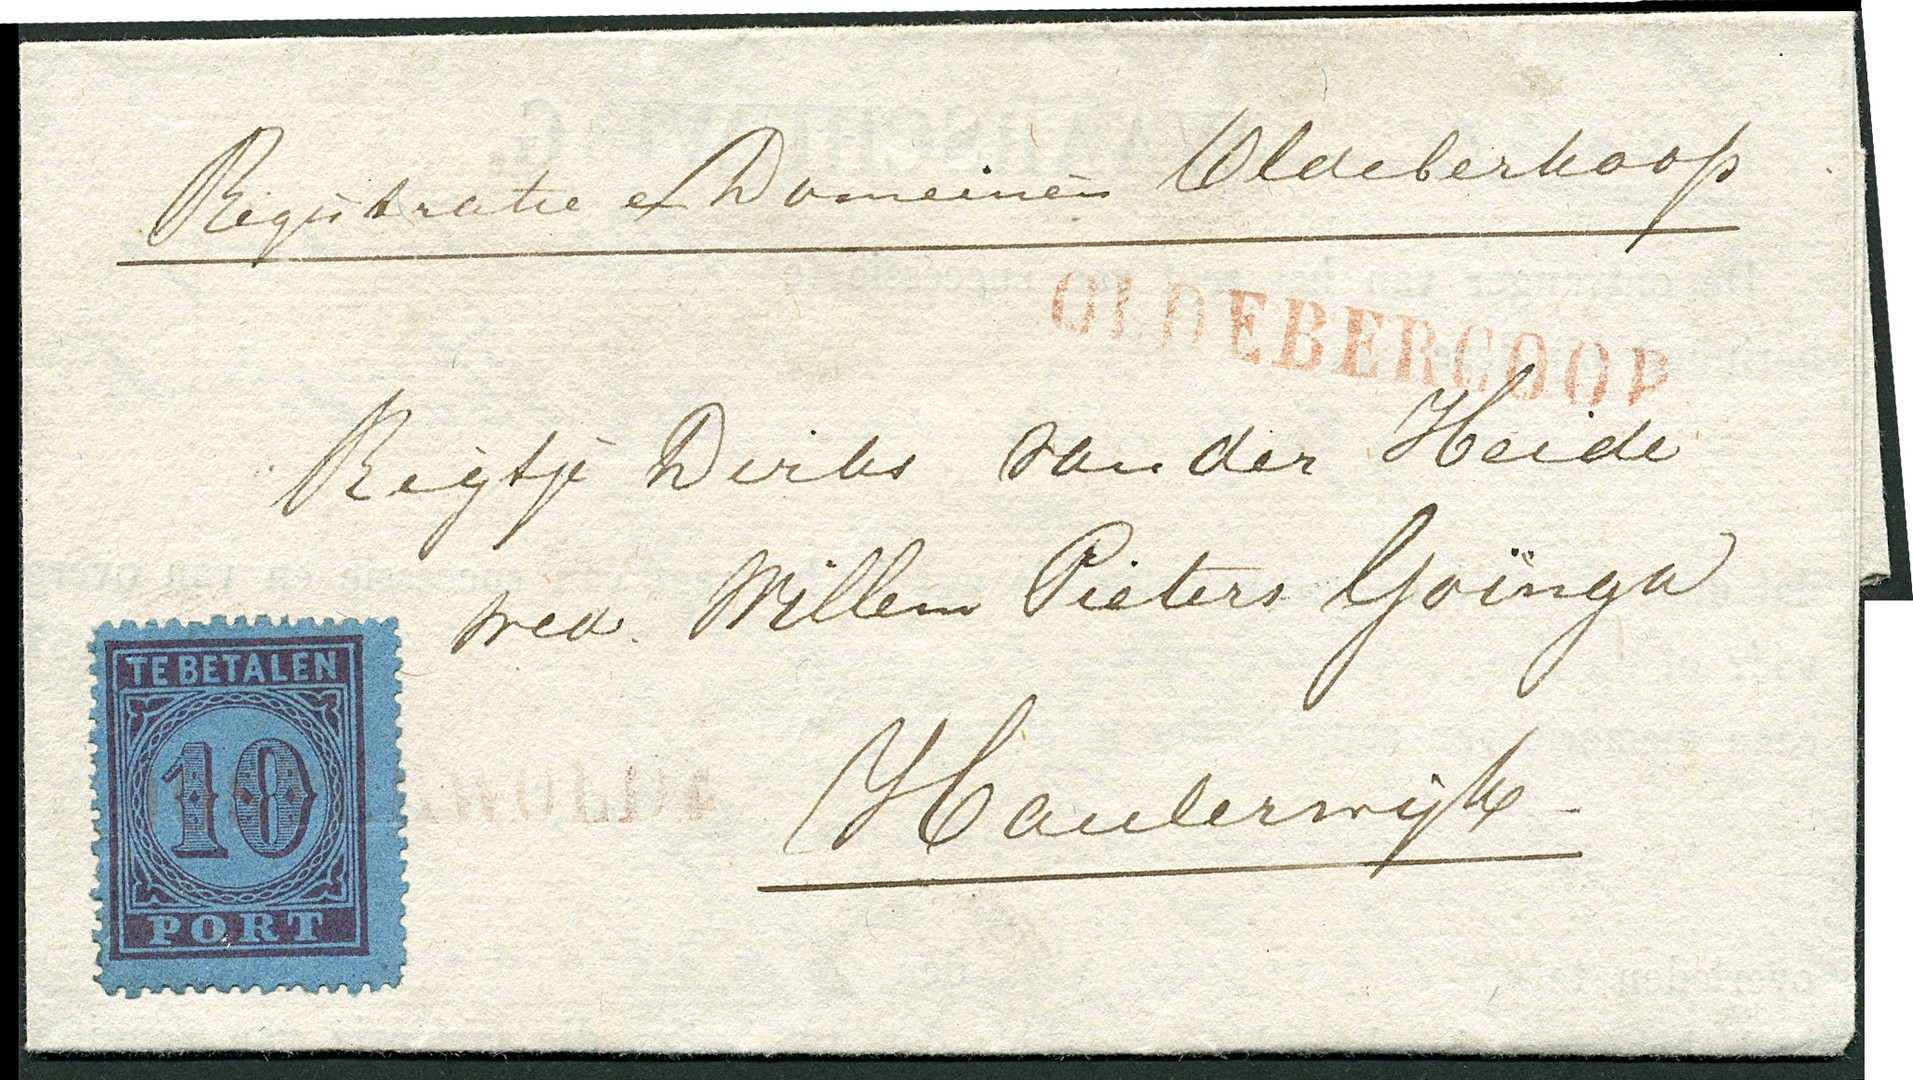 Registratie & Domeinen Oldeberkoop
OLDEBERCOOP
Regtje Dirks van der Heide
wed. Willem Pieters Goïnga
Haulerwijk
TE BETALEN
10
PORT